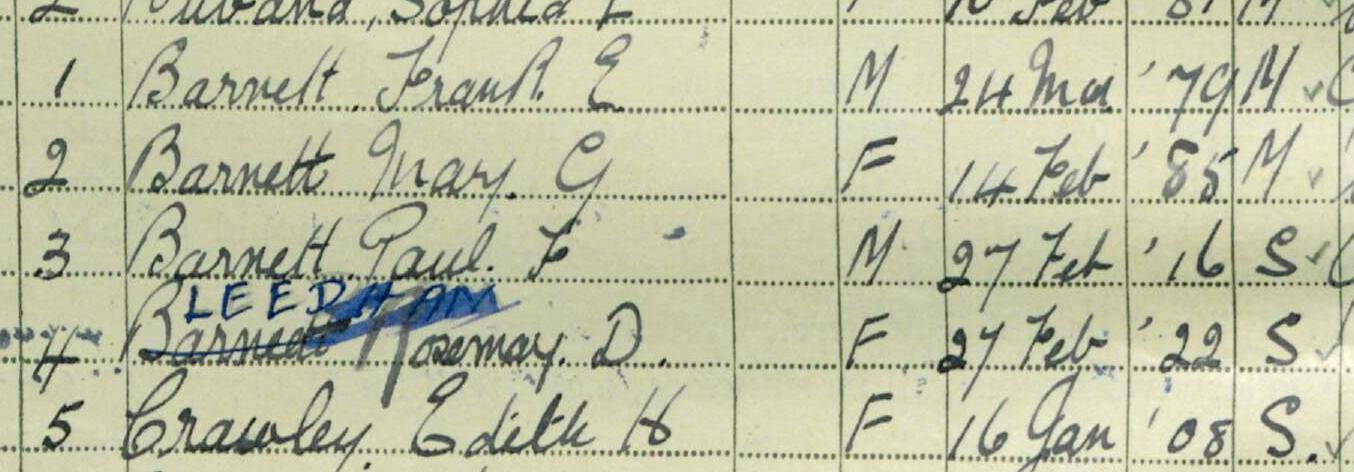 2 Sophia L F 10 Feb '81 M
1 Barnett Frank E M 24 Mar '79 M
2 Barnett May G F 14 Feb '85 M
3 Barnett Paul F M 27 Feb '16 S
LEEDHAM
4 Barnett Rosemay D. F 27 Feb '22 S
5 Crawley Edith H F 16 Jan '08 S.